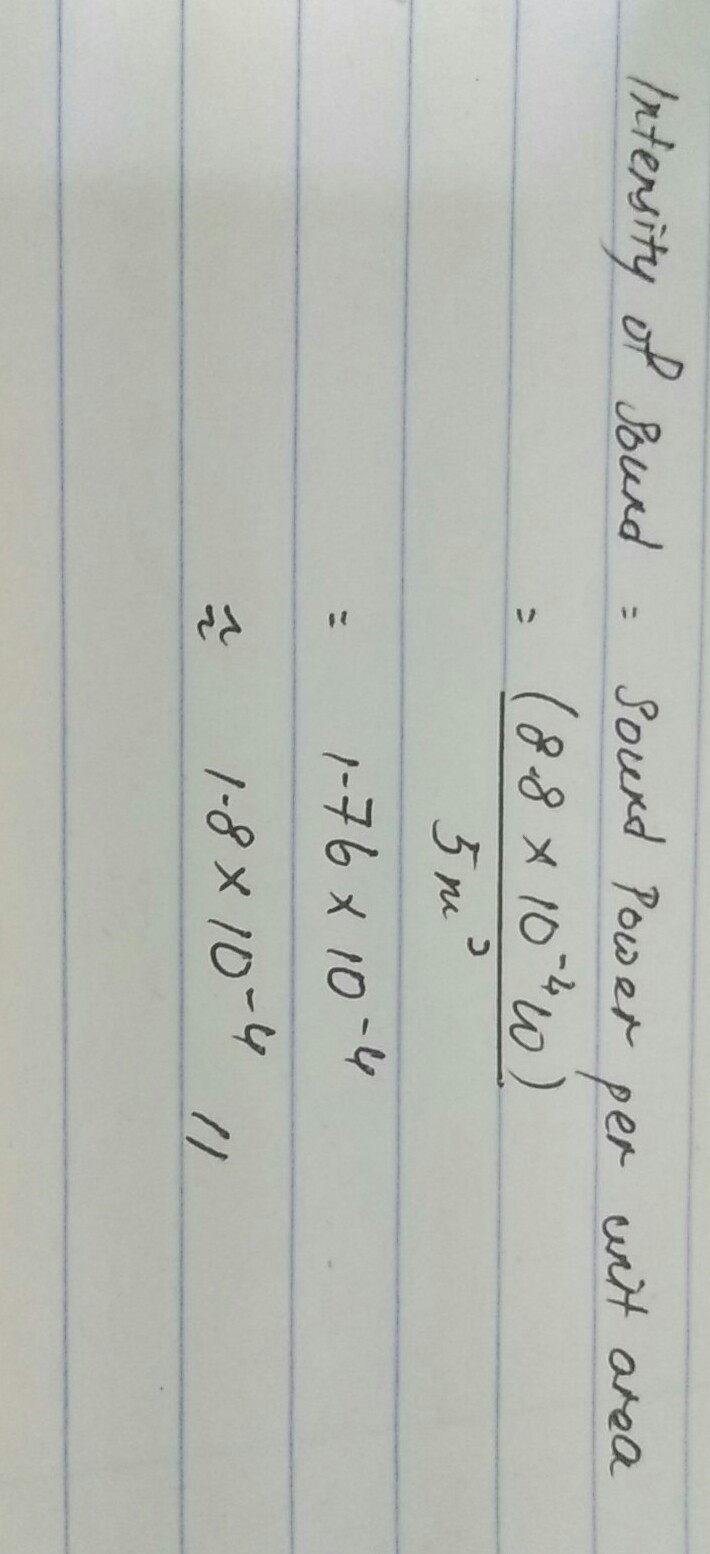 Intensity of Sound = Sound Power per unit area
= (8.8 × 10⁻⁴ W)
5 m²
= 1.76 × 10⁻⁴
≈ 1.8 × 10⁻⁴ //